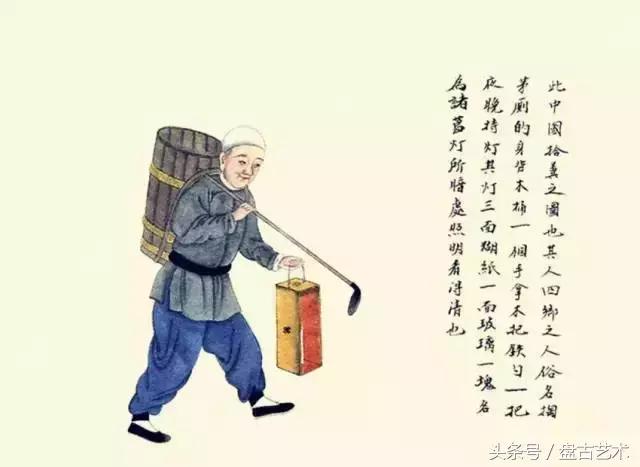 此中國拾糞之圖也其人四鄉之人俗名掏
茅厠的身背木桶一個手拿木把鉄勺一把
夜晚持灯其灯三面糊紙一面玻璃一塊名
為諸葛灯所時處照明看得清也
头条号/盘古艺术